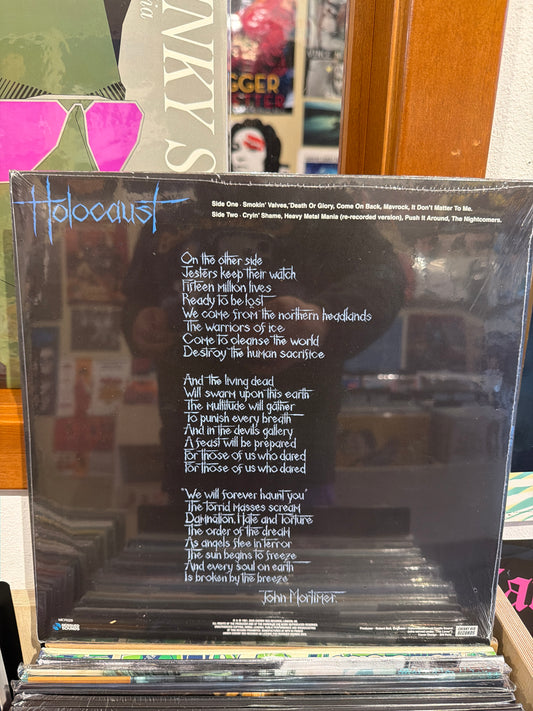 NKY S
nia
GGER
ETTER
Holocaust
Side One - Smokin' Valves, Death Or Glory, Come On Back, Mavrock, It Don't Matter To Me.
Side Two - Cryin' Shame, Heavy Metal Mania (re-recorded version), Push It Around, The Nightcomers.
On the other side
Jesters keep their watch
Fifteen million lives
Ready to be lost
We come from the northern headlands
The warriors of ice
Come to cleanse the world
Destroy the human sacrifice
And the living dead
Will swarm upon this earth
The multitude will gather
To punish every breath
And in the devils gallery
A feast will be prepared
For those of us who dared
For those of us who dared
"We will forever haunt you"
The torrid masses scream
Damnation, Hate and Torture
The order of the dream
As angels flee in terror
The sun begins to freeze
And every soul on earth
Is broken by the breeze
John Mortimer.
CHERRY RED
RECORDS